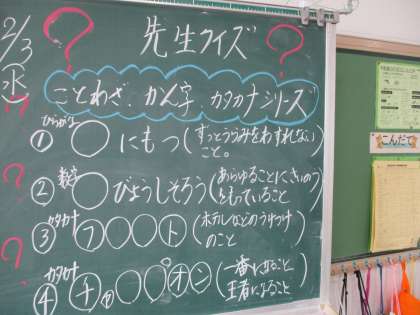 2/3
(水)
先生クイズ
ことわざ、かん字、カタカナシリーズ
ひらがな
① ◯にもつ(ずっとうらみをわすれないこと。
数字
② ◯びょうしそろう(あらゆることにきのうをもっていること
カタカナ
③ フ◯◯ト(ホテルなどのうけつけのこと
カタカナ
④ チャ◯◯°オン(一番になること 王者になること
こんだて